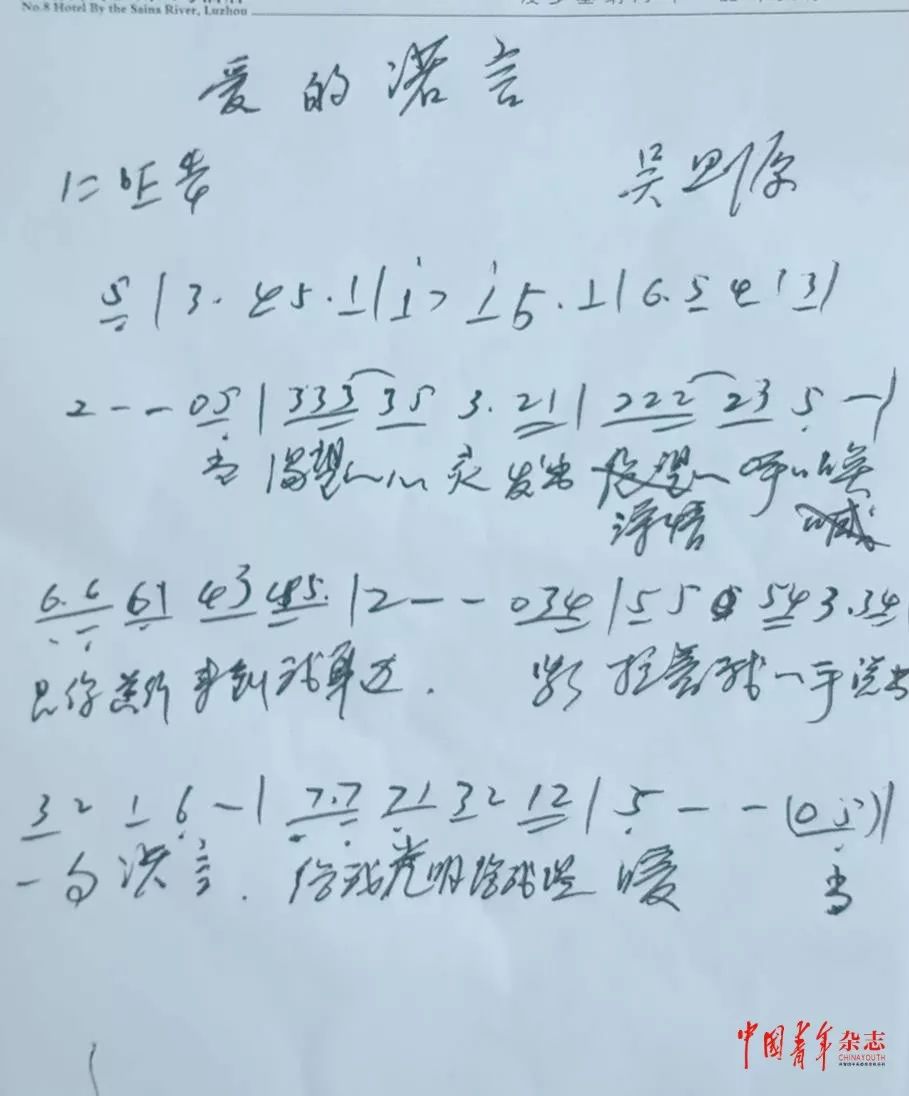 No.8 Hotel By the Sains River, Luzhou
爱的诺言
1=bE 4/4 吴则源
5 | 3. 45.1 | 1 > 15.1 | 6.5 4 1 3 |
2 - - 05 | 333 35 3.21 | 222 23 5 - |
当渴望心灵发出 呼唤
浮悟 喊
6.6 61 43 45. | 2 - - 034 | 55 54 3.34
是你慈祥来到我身边. 紧拉着我一手说出
32 16 - | 7.7 21 32 12 | 5 - - (05) |
一句诺言. 给我光明给我温暖 当
中国青年杂志
CHINAYOUTH